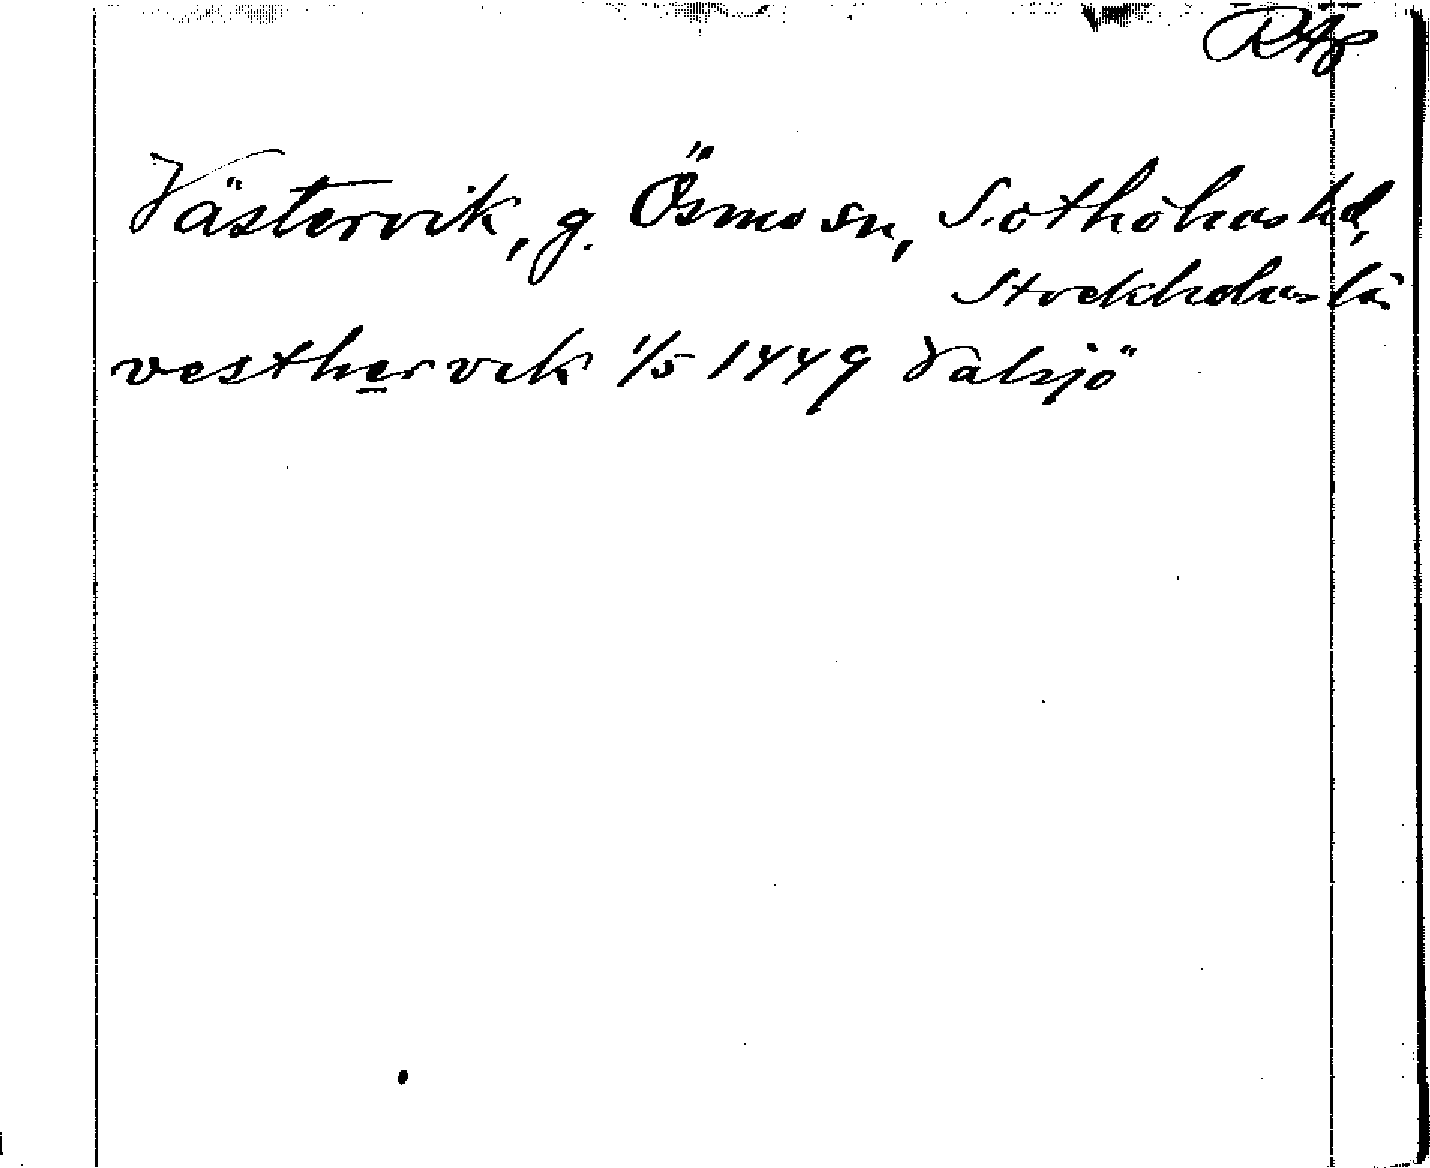 RAp
Västervik, g. Ösmo sn, Sotholms hd,
Stockholms lä
vesthervik 1/5 1449 Valsjö